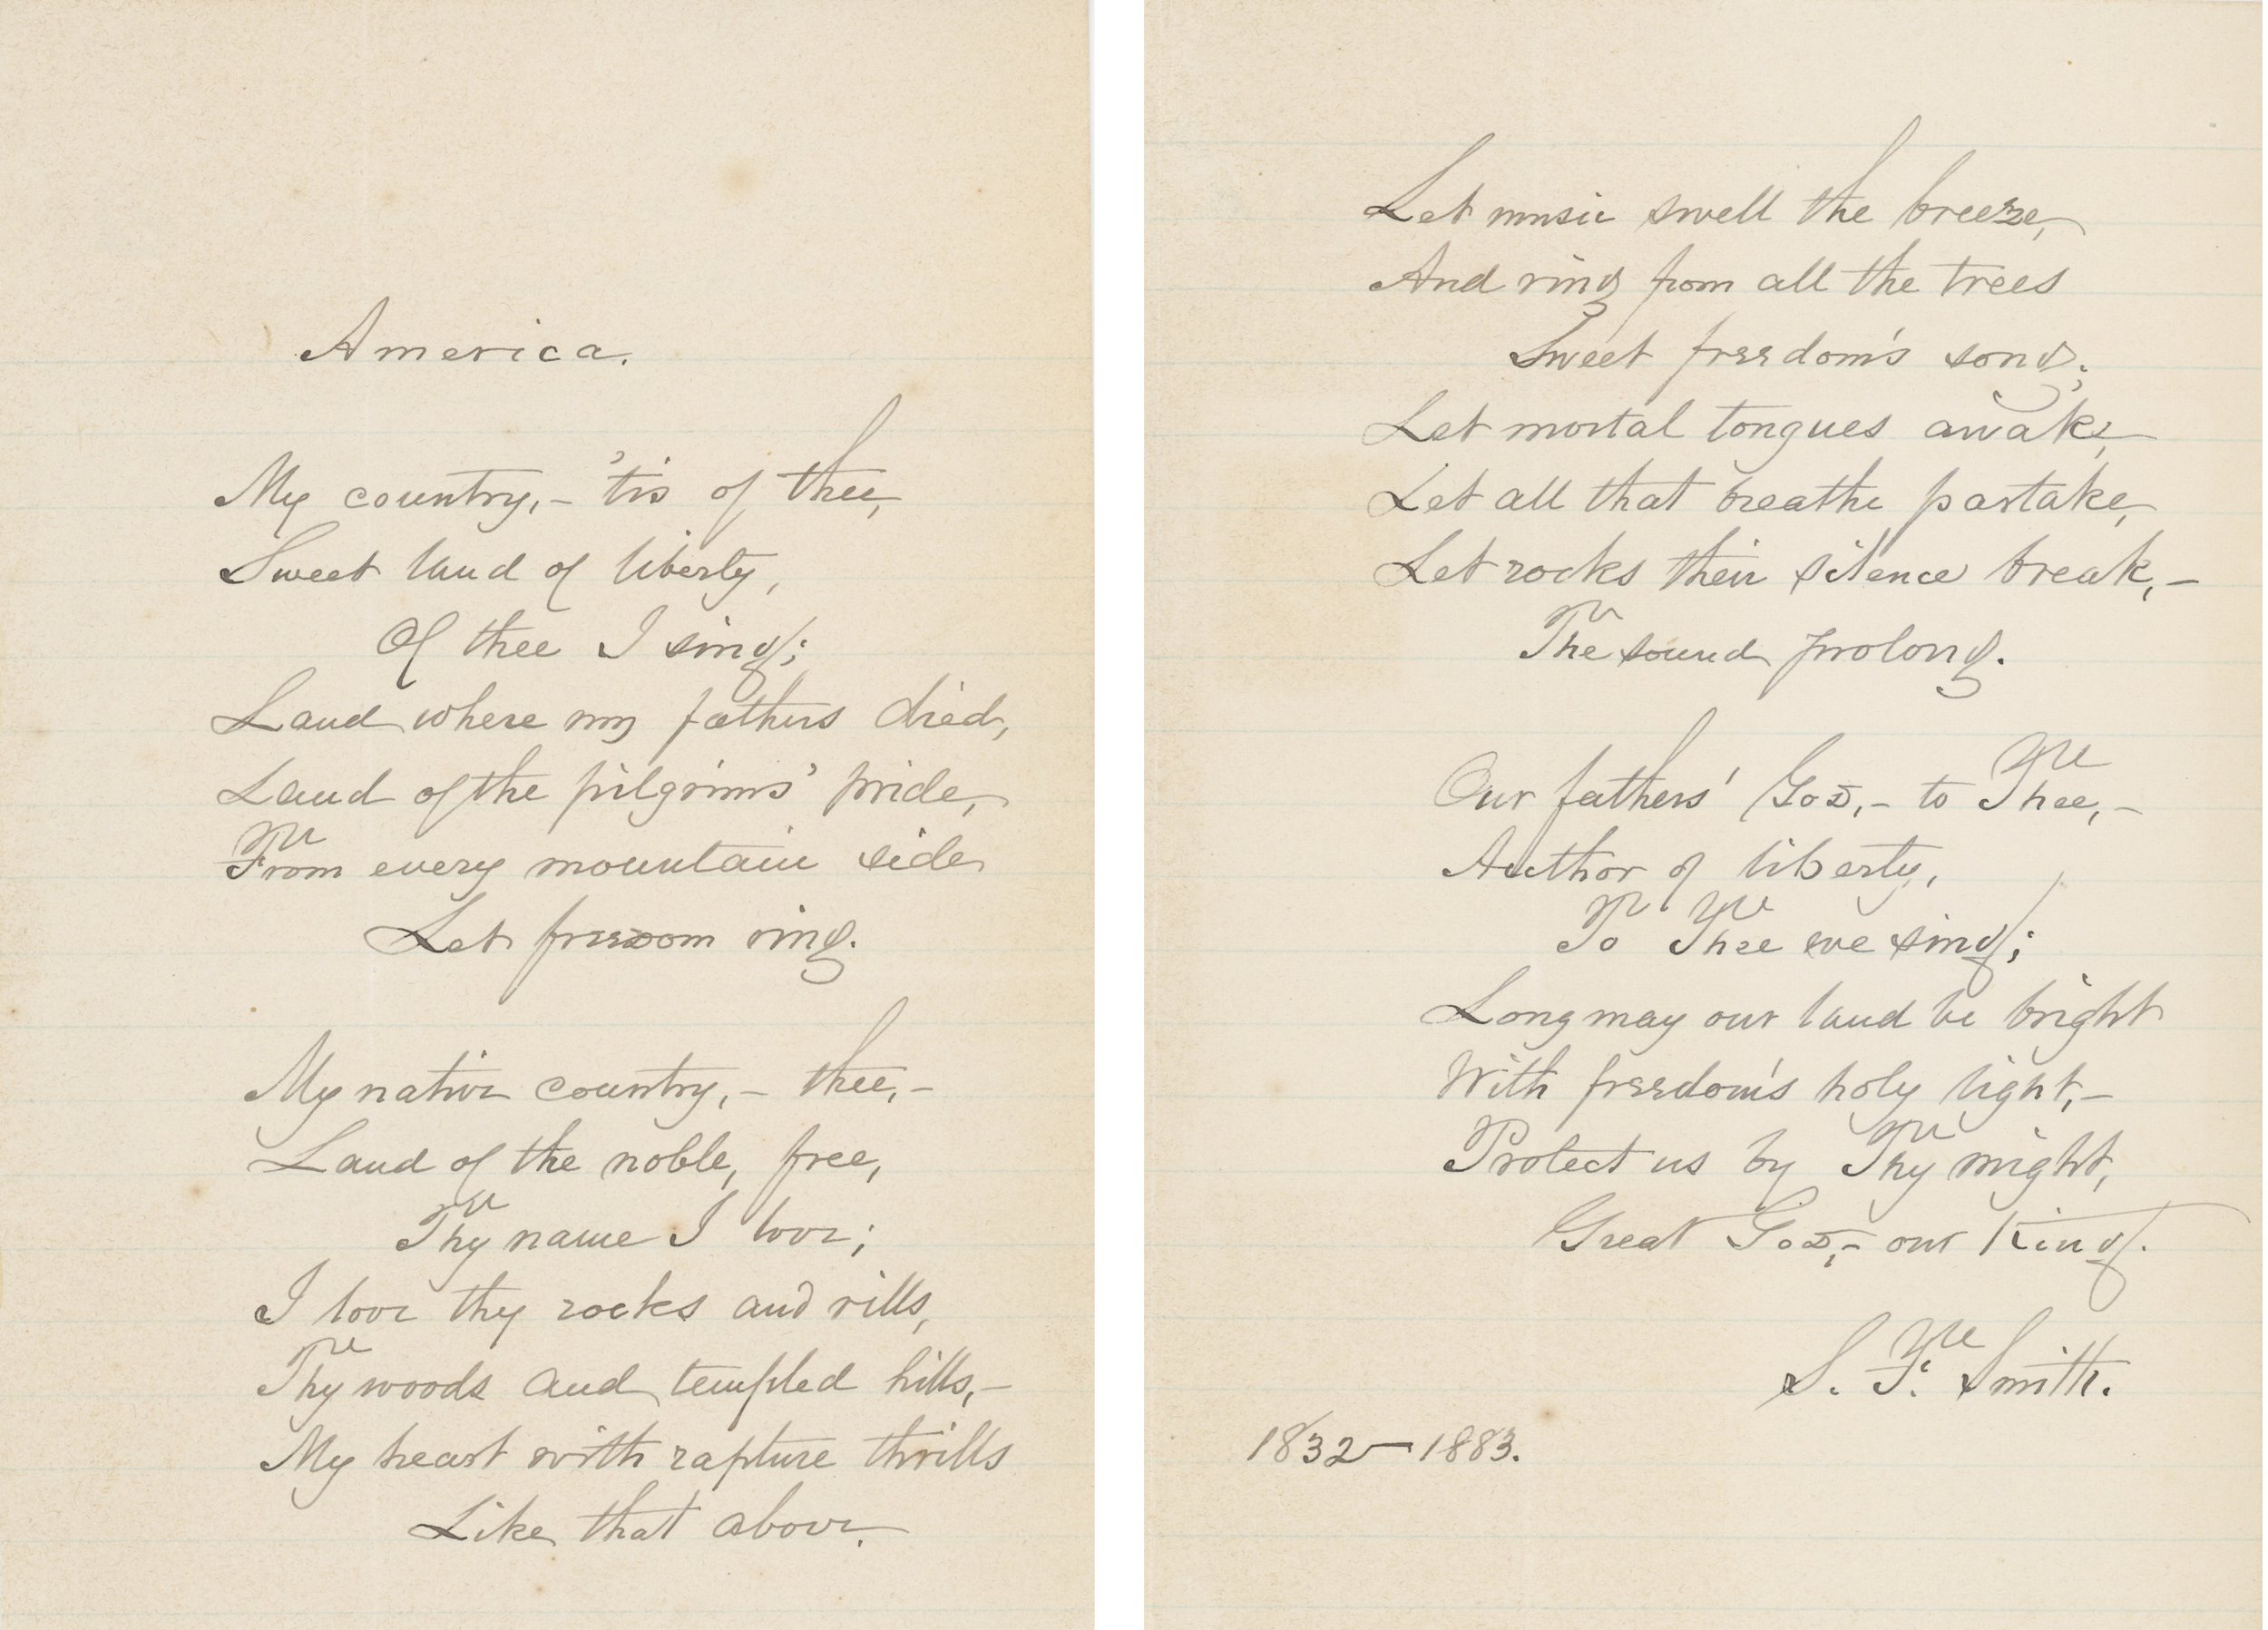 America.
My country,– 'tis of thee,
Sweet land of liberty,
Of thee I sing;
Land where my fathers died,
Land of the pilgrims' pride,
From every mountain side
Let freedom ring.
My native country,– thee,–
Land of the noble, free,
Thy name I love;
I love thy rocks and rills,
Thy woods and templed hills,–
My heart with rapture thrills
Like that above.
Let music swell the breeze,
And ring from all the trees
Sweet freedom's song;
Let mortal tongues awake,
Let all that breathe partake,
Let rocks their silence break,–
The sound prolong.
Our fathers' God,– to Thee,–
Author of liberty,
To Thee we sing;
Long may our land be bright
With freedom's holy light,–
Protect us by Thy might,
Great God,– our King.
S. F. Smith.
1832–1883.